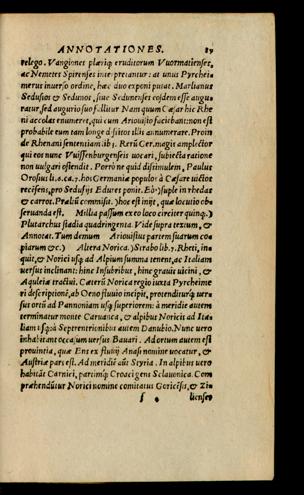 ANNOTATIONES. 89
relego. Vangiones plæriq; eruditorum Vuormatienses,
ac Nemetes Spirenses interpretantur: at unus Pyrchei=
merus inuerso ordine, hæc duo exponi putat. Marlianus
Sedusios & Sedunos, siue Sedunenses eosdem esse augu=
ratur, sed augurio suo fallitur Nam quum Cæsar hic Rhe
ni accolas enumeret, qui cum Ariouisto faciebant: non est
probabile eum tam longe dissitos illis annumerare. Proin
de Rhenani sententiam lib. 3. Rerū Ger. magis amplector
qui eos nunc Vuissenburgenseis uocari, subiecta ratione
non uulgari ostendit. Porrò ne quid dissimulem, Paulus
Orosius li. 6. ca. 7. hos Germaniæ populos à Cæsare uictos
recēsens, pro Sedusijs Edures ponit. Eosq; suple in rhedas
& carros. Præliū commissū. ) hoc est inijt, quæ locutio ob=
seruanda est. Millia passuum ex eo loco circiter quinq;)
Plutarchus stadia quadringenta. Vide supra textum, &
Annotat. Tum demum Ariouistus partem suarum co=
piarum &c.) Altera Norica.) Strabo lib. 7. Rheti, in=
quit, & Norici usq; ad Alpium summa tenent, ac Italiam
uersus inclinant: hinc Insubribus, hinc grauit uicini, &
Aquileiæ tractui. Caterū Norica regio iuxta Pyrcheime
ri descriptionē, ab Oeno fluuio incipit, protenditurq; uer=
sus ortū ad Pannoniam usq; superiorem: à meridie autem
terminatur monte Caruanca, & alpibus Noricis ad Ita=
liam usq; à Septentrionibus autem Danubio. Nunc uero
inhabitant occasum uersus Bauari. Ad ortum autem est
prouintia, quæ Ens ex fluuij Anasi nomine uocatur, &
Austriæ pars est. Ad meridiē aūt Styria. In alpibus uero
habitāt Carnici, partimq; Croaci gens Sclauonica. Com
præhendūtur Norici nomine comitatus Goricēsis, & Zi=
f lienses